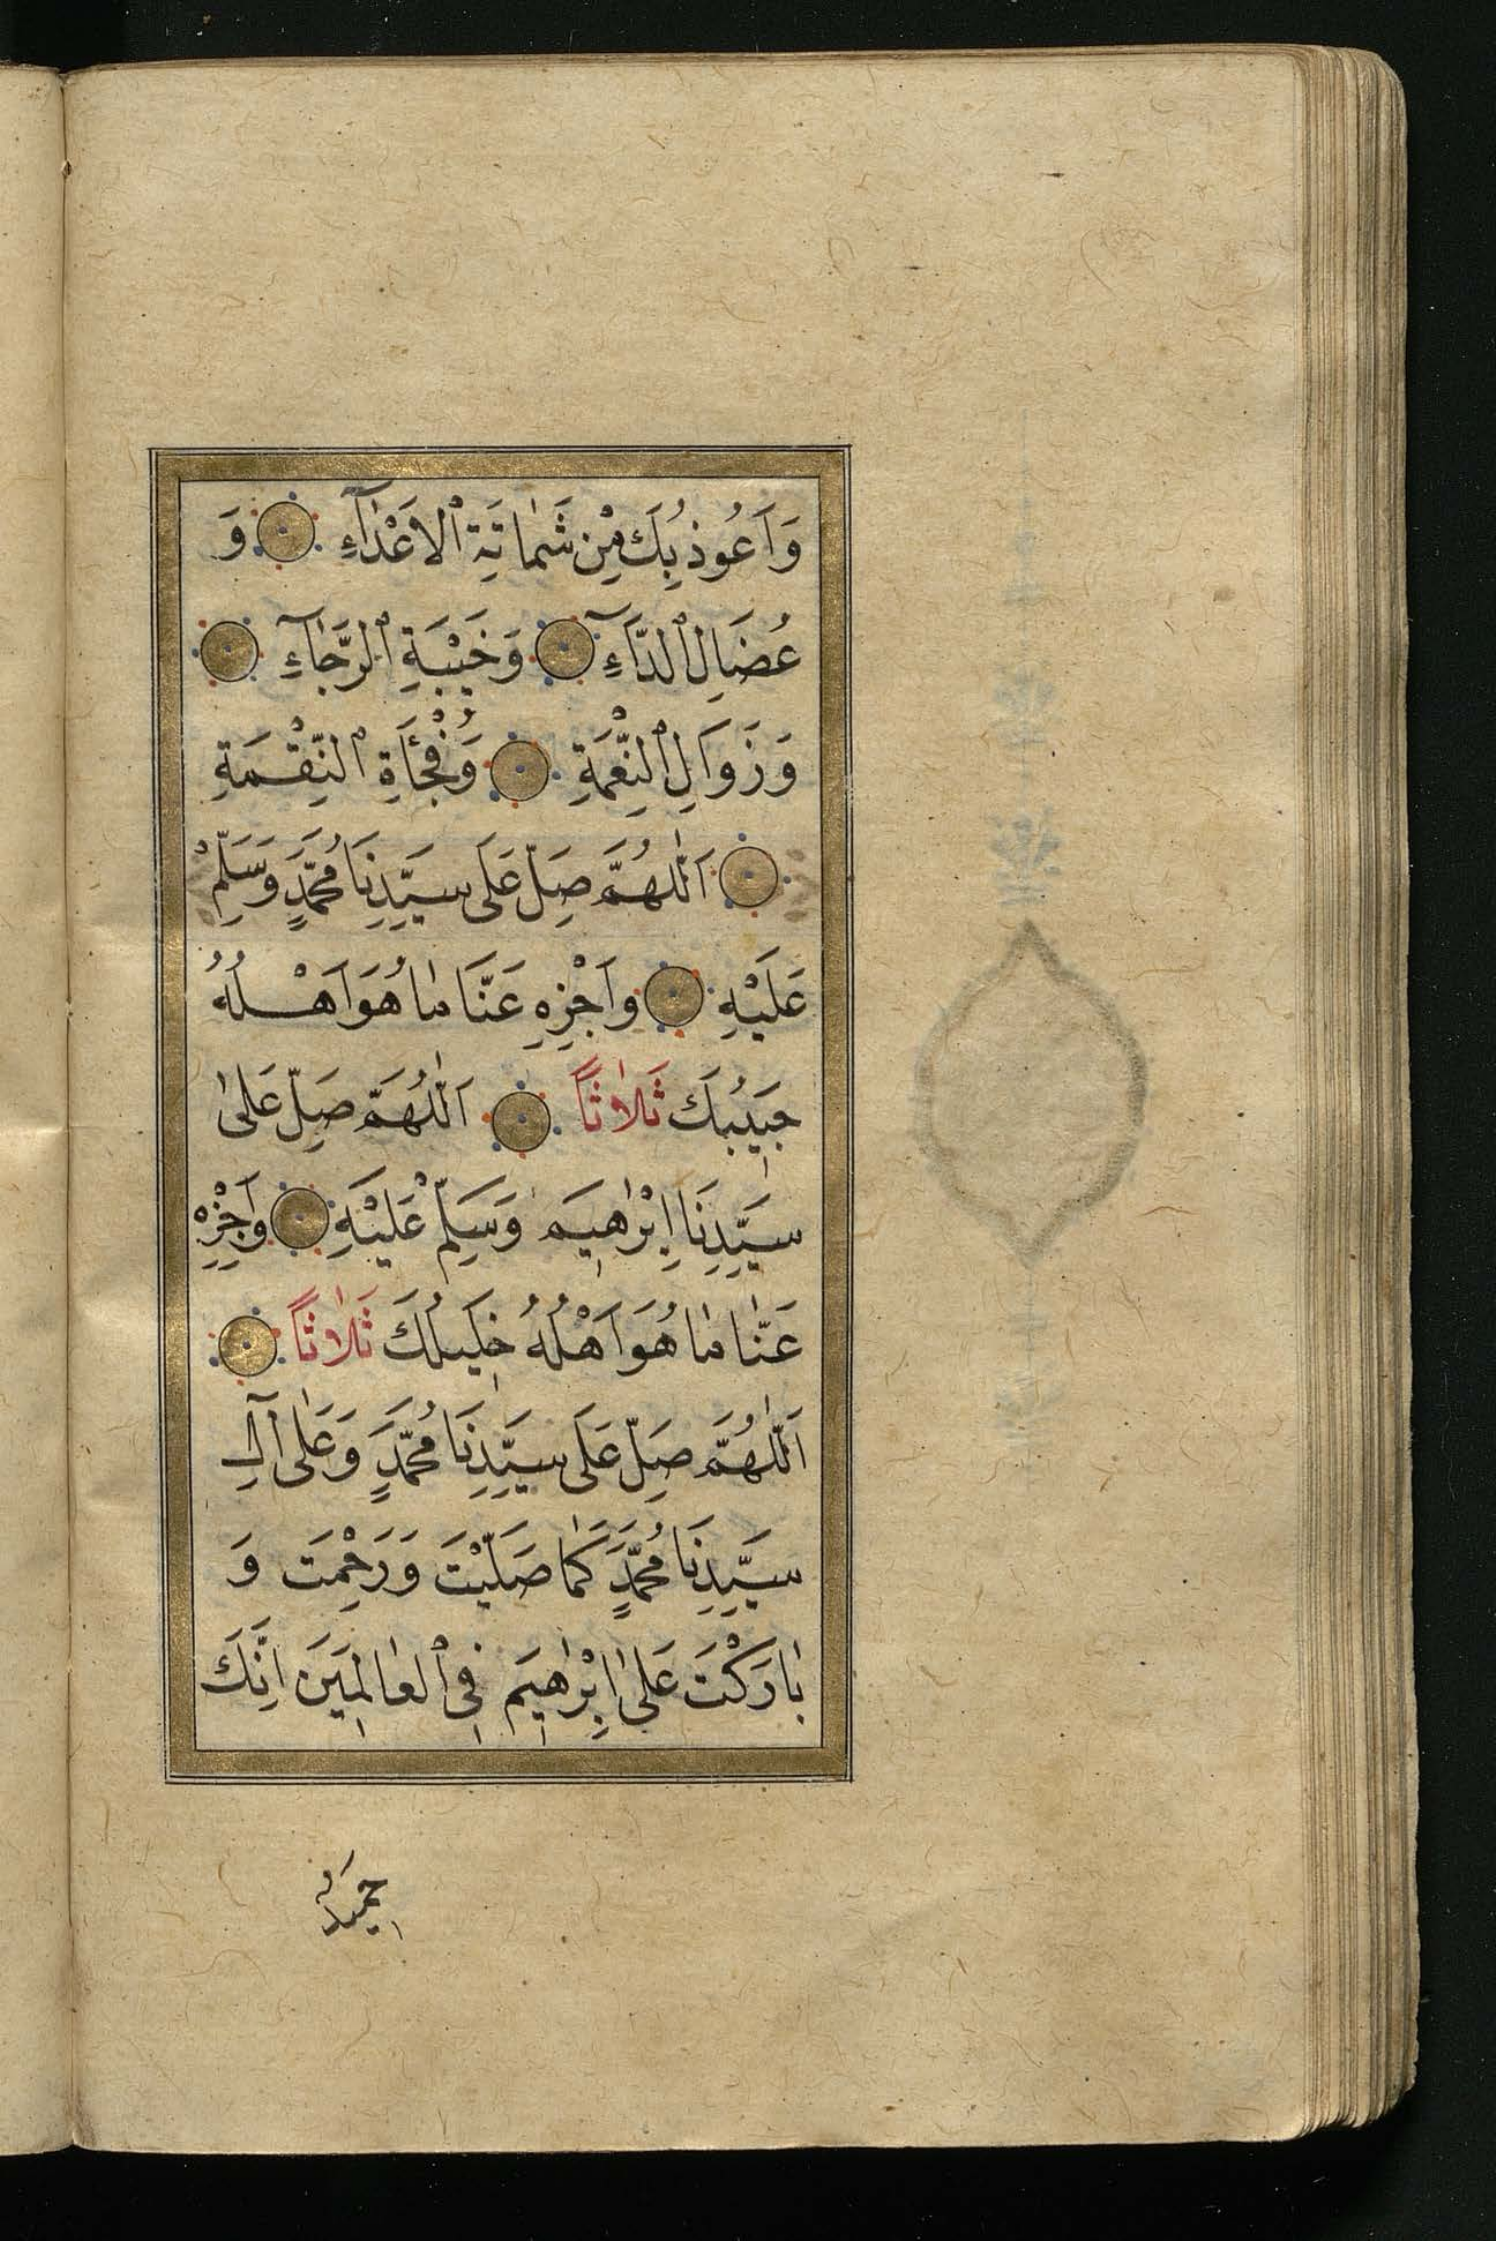 وَاَعُوذُ بِكَ مِنْ شَمَاتَةِ ٱلاَعْدَآءِ وَ
عُضَالِ ٱلدَّآءِ وَخَيْبَةِ ٱلرَّجَآءِ
وَزَوَالِ ٱلنِّعْمَةِ وَفُجْأَةِ ٱلنِّقْمَةِ
اَللّٰهُمَّ صَلِّ عَلَى سَيِّدِنَا مُحَمَّدٍ وَسَلِّمْ
عَلَيْهِ وَاَجْزِهِ عَنَّا مَا هُوَ اَهْلُهُ
حَبِيبُكَ ثَلاَثًا اَللّٰهُمَّ صَلِّ عَلٰى
سَيِّدِنَا اِبْرٰهِيمَ وَسَلِّمْ عَلَيْهِ وَاَجْزِهِ
عَنَّا مَا هُوَ اَهْلُهُ خَلِيلُكَ ثَلاَثًا
اَللّٰهُمَّ صَلِّ عَلَى سَيِّدِنَا مُحَمَّدٍ وَعَلٰى آلِ
سَيِّدِنَا مُحَمَّدٍ كَمَا صَلَّيْتَ وَرَحِمْتَ وَ
بَارَكْتَ عَلٰى اِبْرٰهِيمَ فِى ٱلْعَالَمِينَ اِنَّكَ
حَمِيدٌ